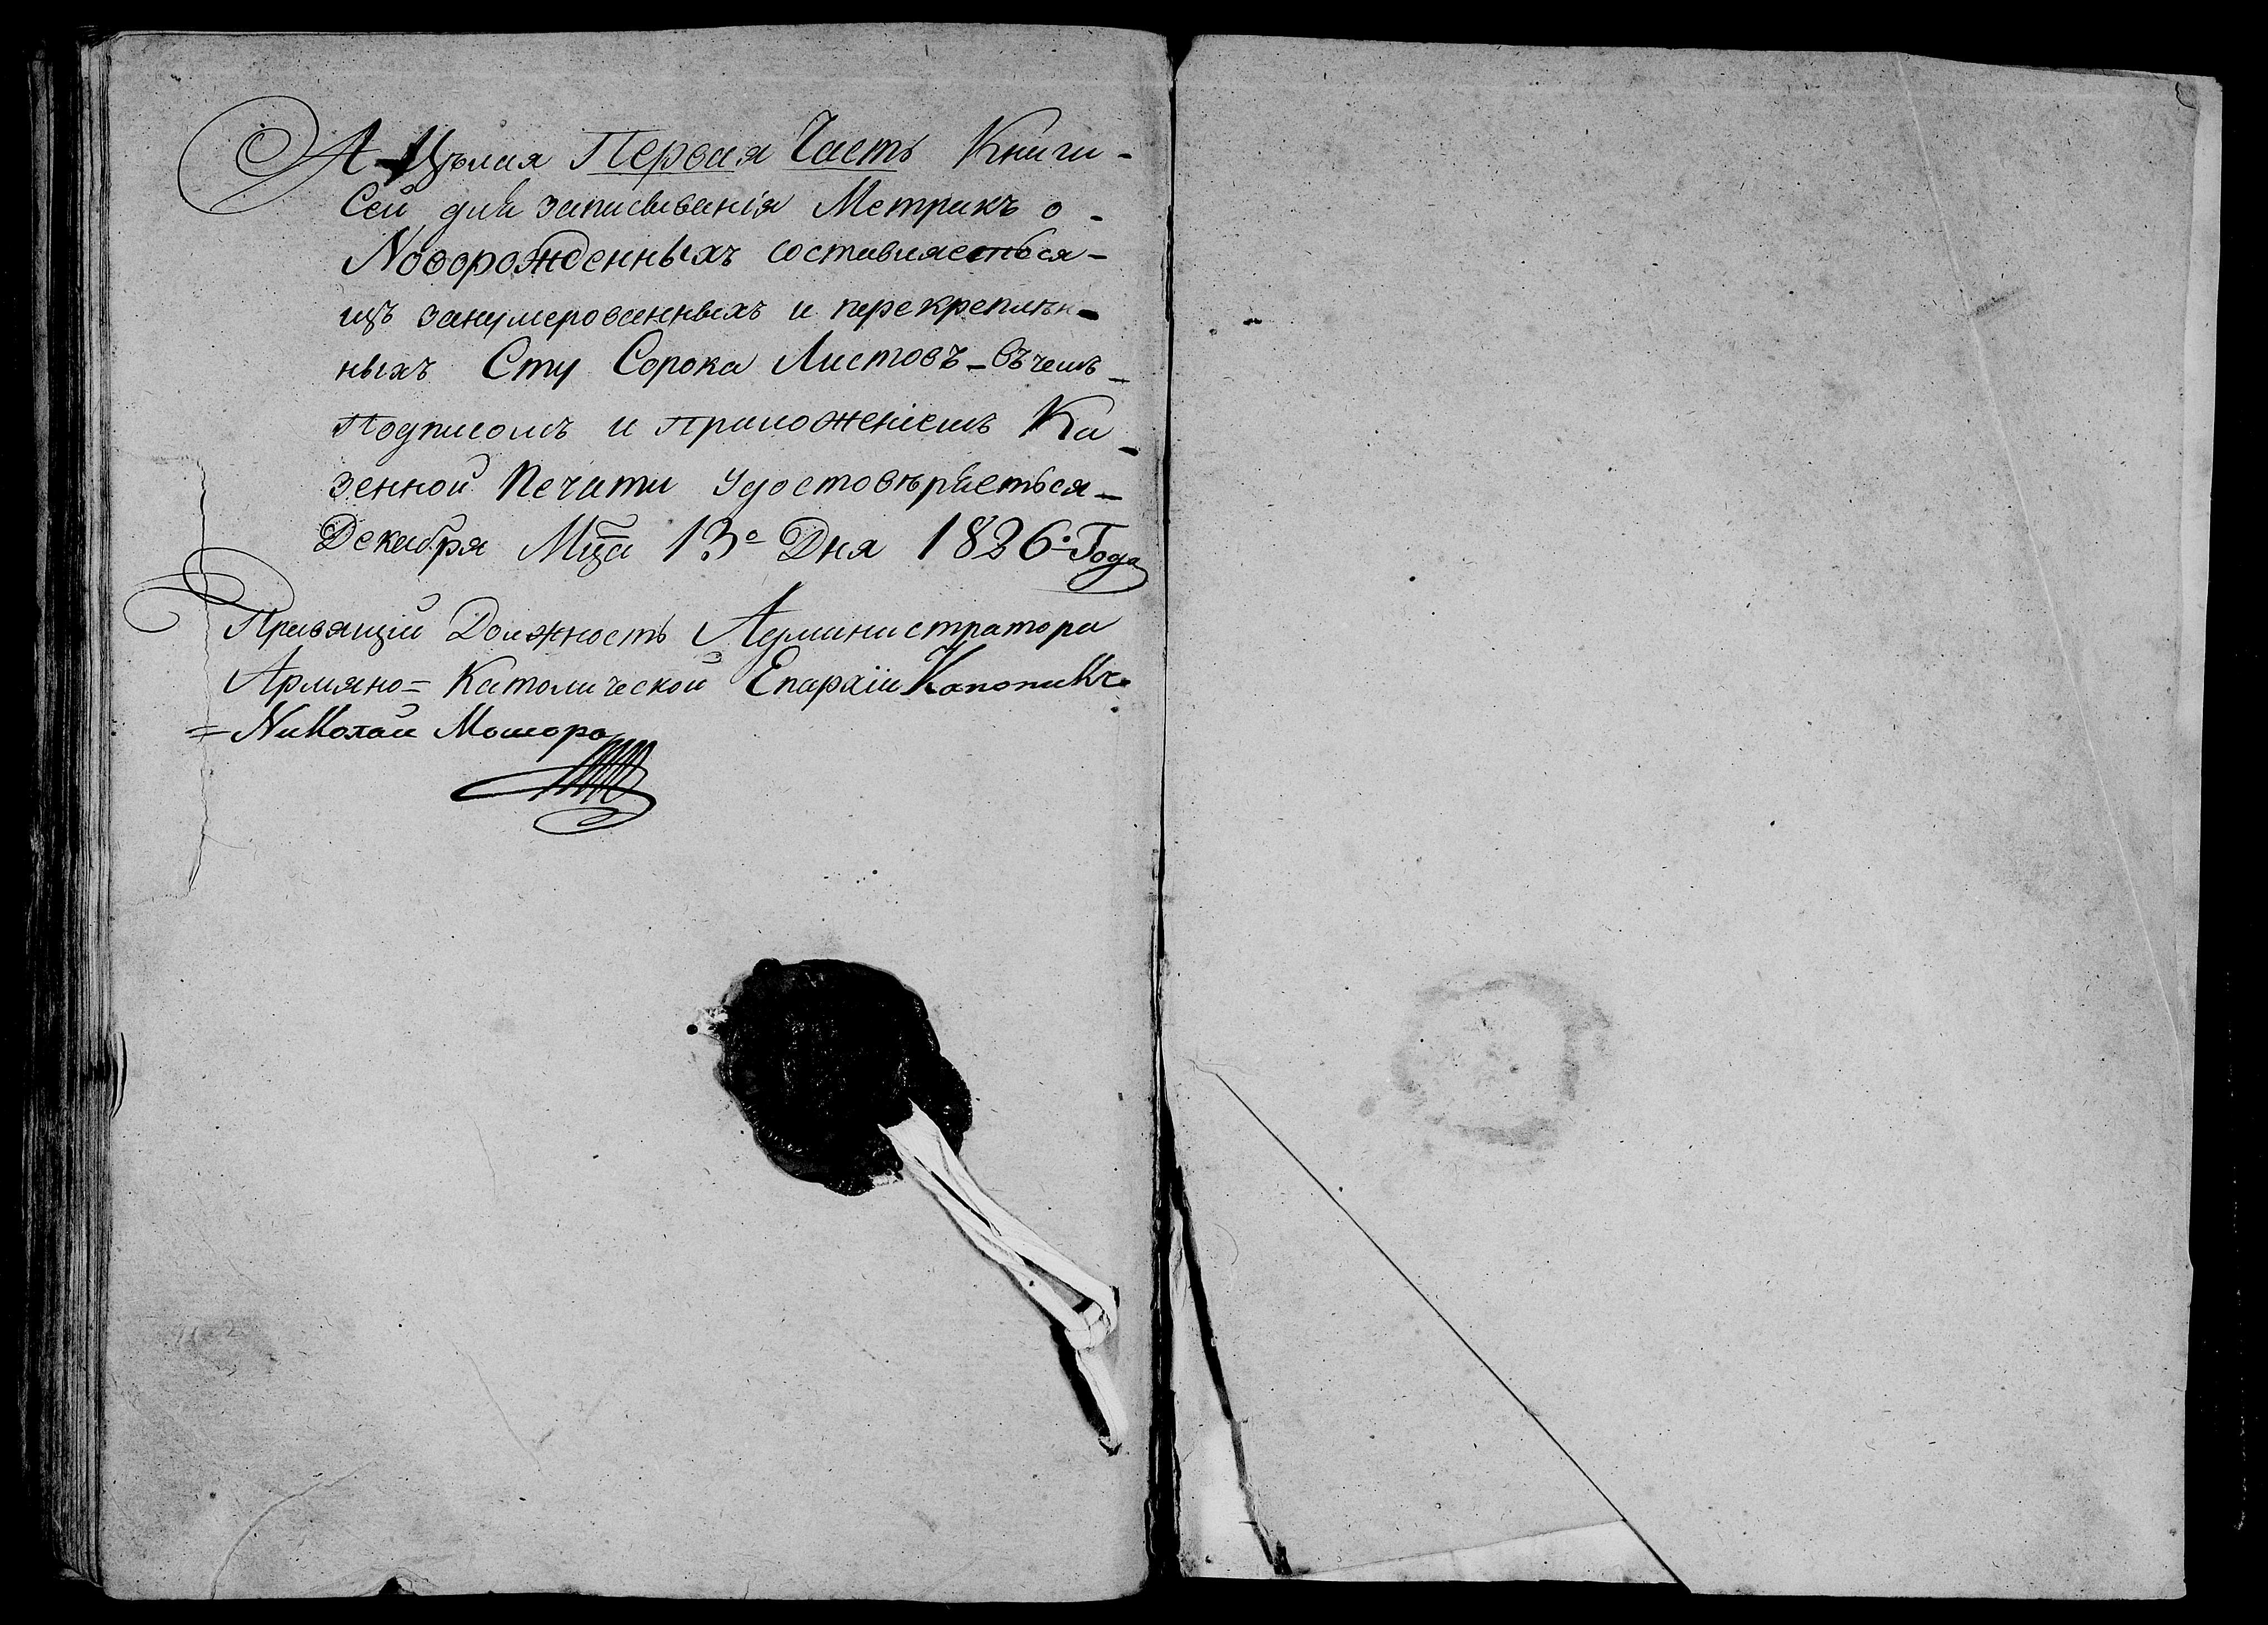 А Цѣлая Первая Часть Книги -
Сей для записыванія Метрикъ о -
Nоворожденныхъ составляеться -
изъ занумерованныхъ и перекреплѣн -
ныхъ Сту Сорока Листовъ - въ чемъ -
Подписомъ и Приложеніемъ Ка -
зенной Печати удостовѣряеться -
Декабря Мца 13º Дня 1826º Года
Правящій Должность Администратора
Армяно = Католической Епархіи Каноникъ
= Nиколай Мошоро